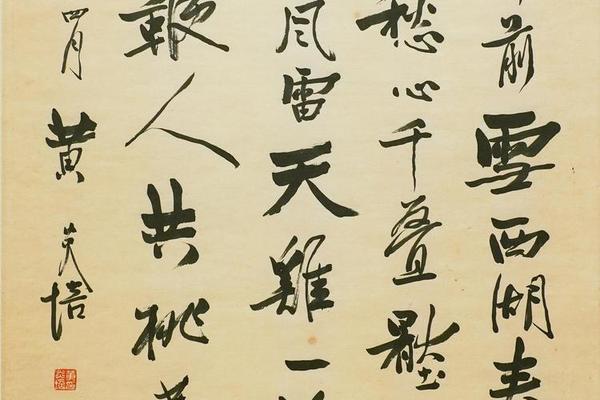 前雪西湖春
愁心千叠壑
風雷天雞一
人共桃
四月黄炎培